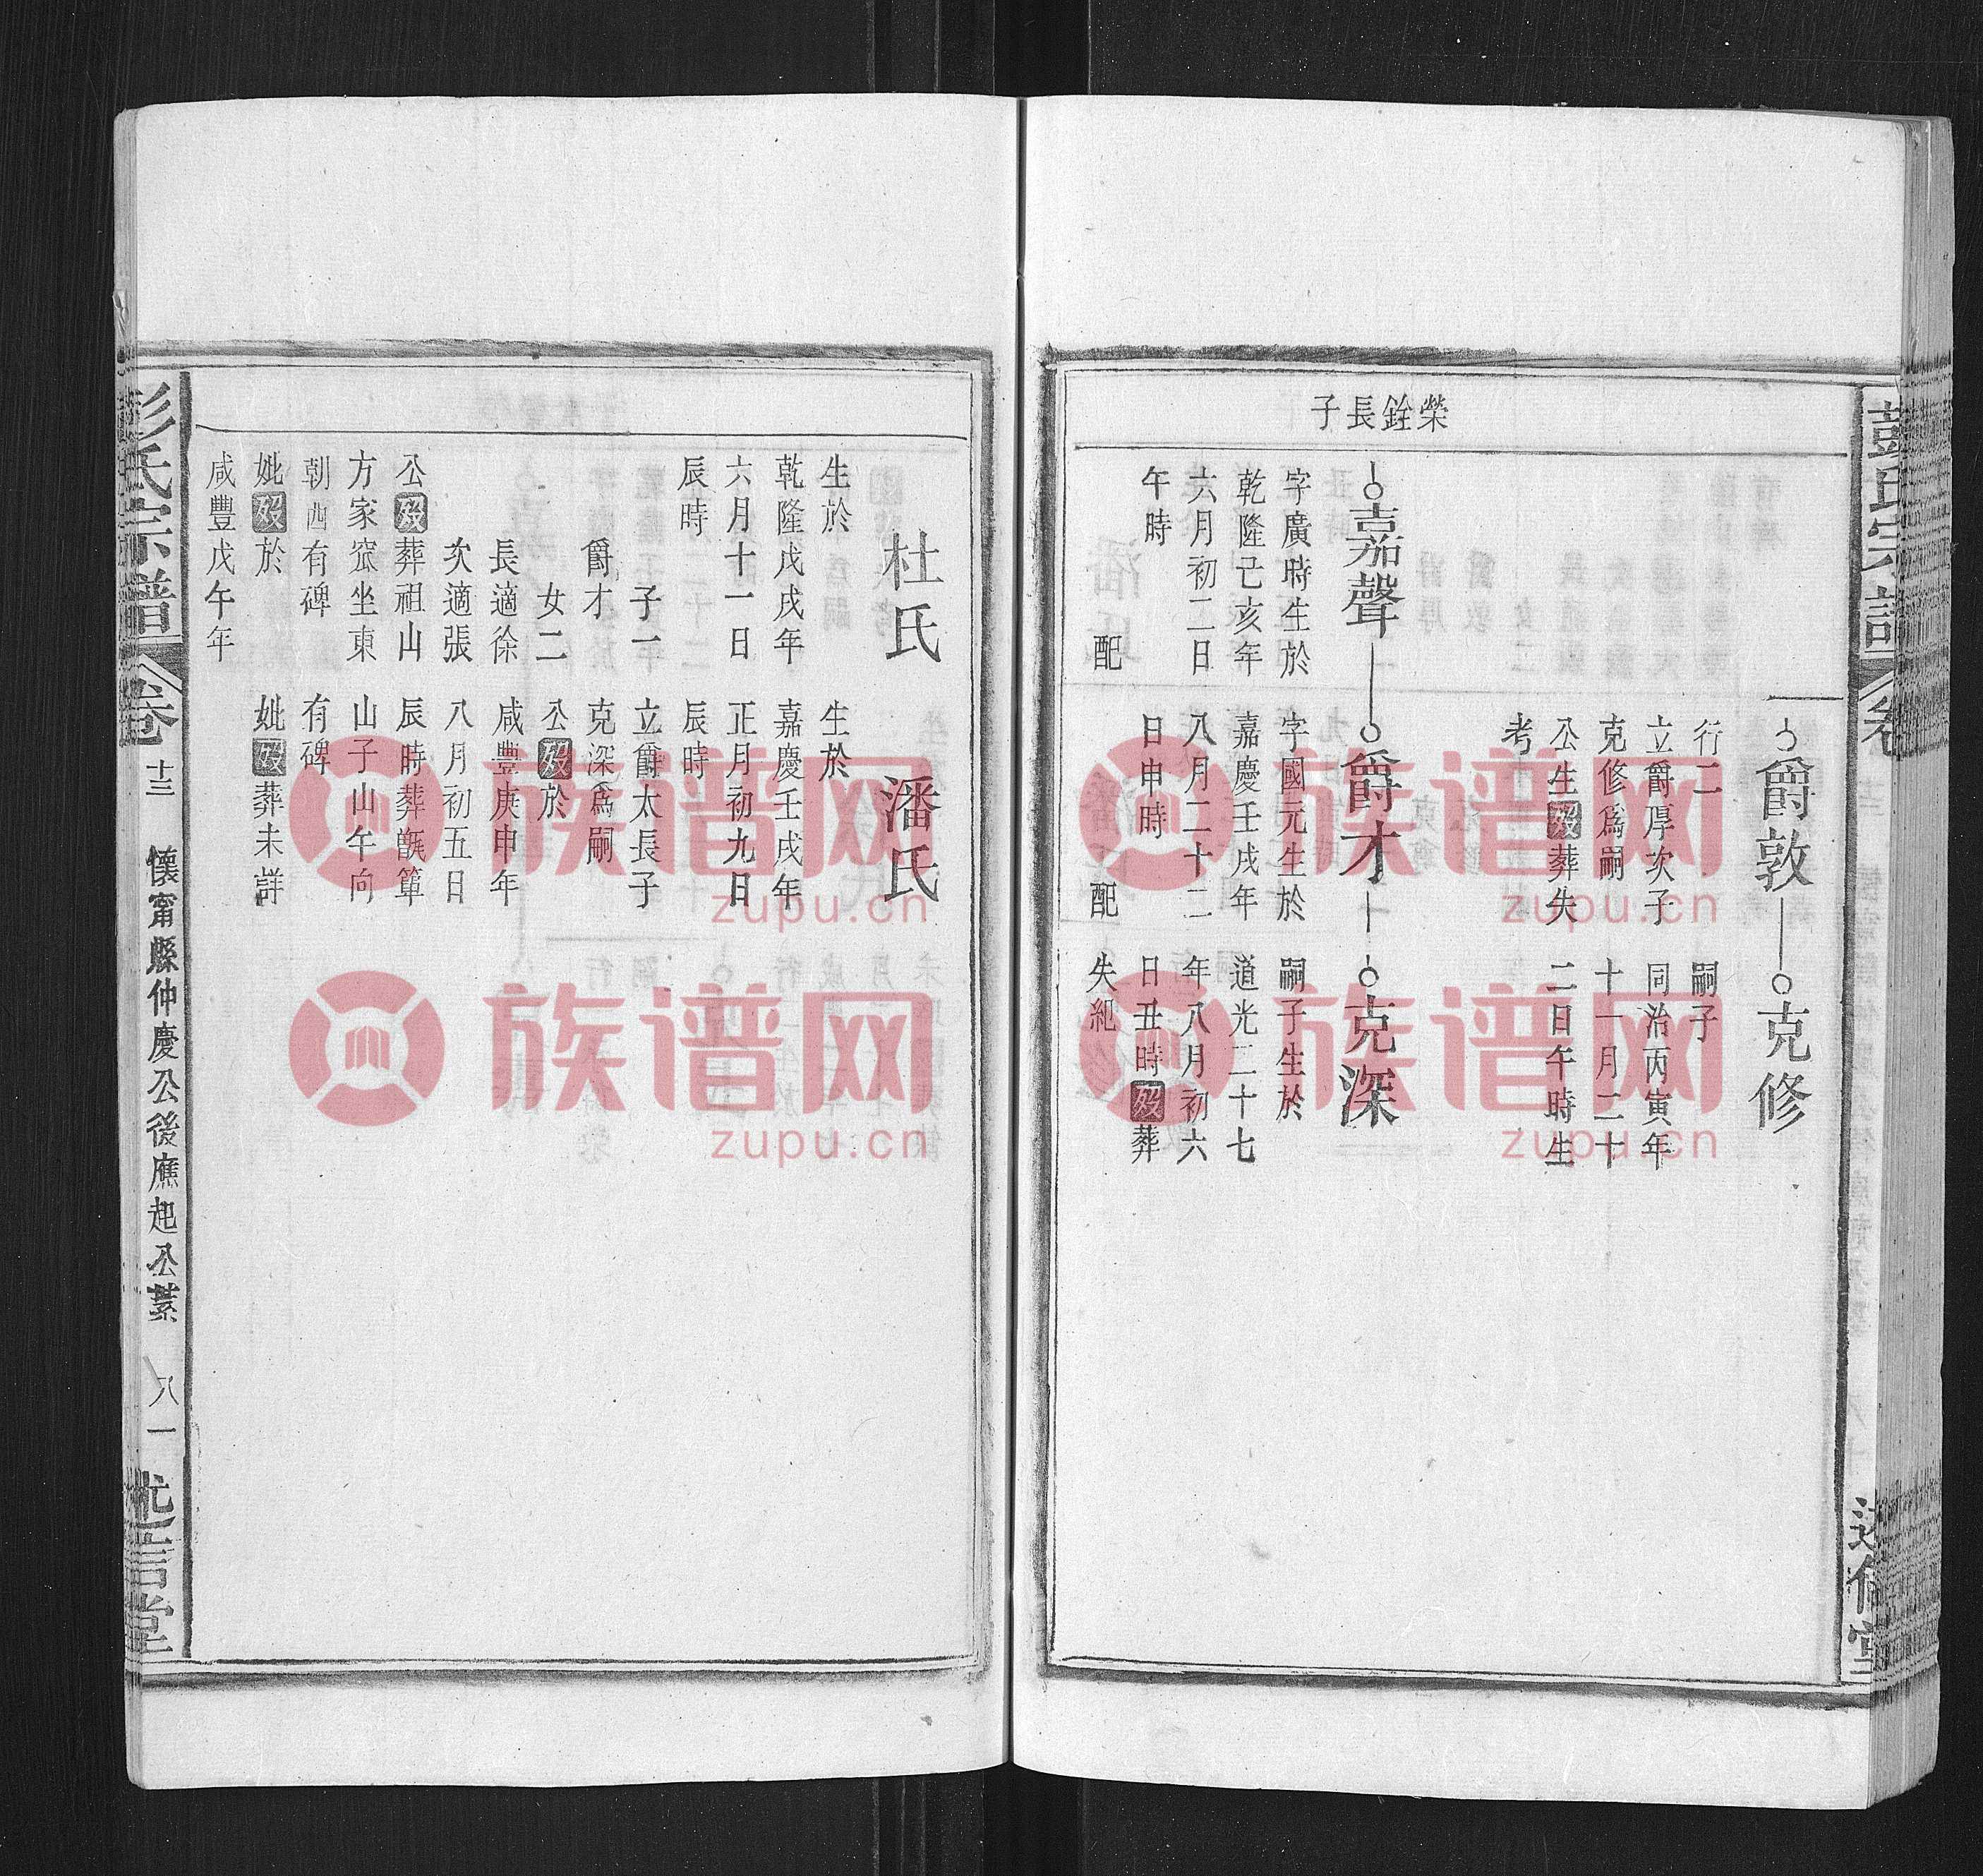 榮銓長子
爵敦
克修
行二
立爵厚次子
克修爲嗣
公生歿葬失
考
嗣子
同治丙寅年
十一月二十
二日午時生
嘉聲
爵才
克深
字廣時生於
乾隆己亥年
六月初二日
午時
配
字國元生於
嘉慶壬戌年
八月二十二
日申時
配
嗣子生於
道光二十七
年八月初六
日丑時歿葬
失紀
述信堂
杜氏
生於
乾隆戊戌年
六月十一日
辰時
子一
爵才
女二
長適徐
次適張
公歿葬祖山
方家窊坐東
朝西有碑
妣歿於
咸豐戊午年
潘氏
生於
嘉慶壬戌年
正月初九日
辰時
立爵太長子
克深爲嗣
公歿於
咸豐庚申年
八月初五日
辰時葬甑箄
山子山午向
有碑
妣歿葬未詳
彭氏宗譜
卷
十三
懷甯縣仲慶公後應起公葉
八一
述信堂
族谱网
zupu.cn
族谱网
zupu.cn
族谱网
zupu.cn
族谱网
zupu.cn